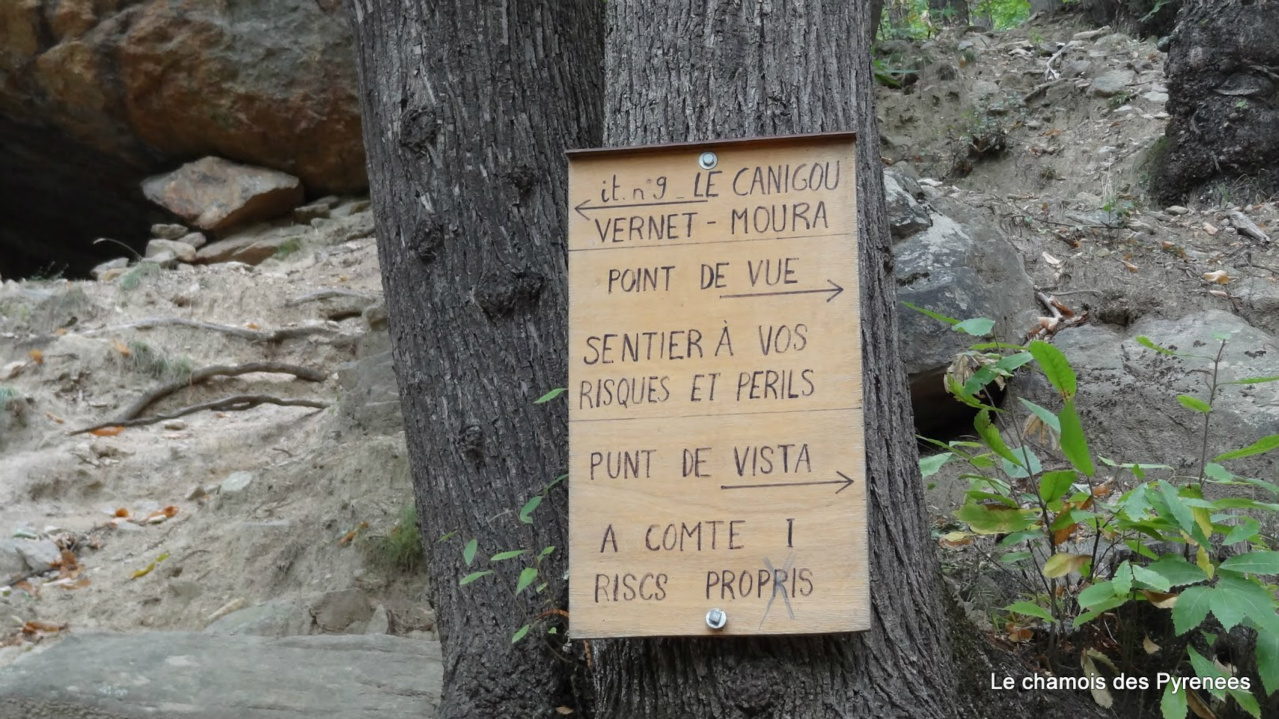 it. n°9_LE CANIGOU
VERNET - MOURA
POINT DE VUE
SENTIER À VOS
RISQUES ET PERILS
PUNT DE VISTA
A COMTE I
RISCS PROPRIS
Le chamois des Pyrenees